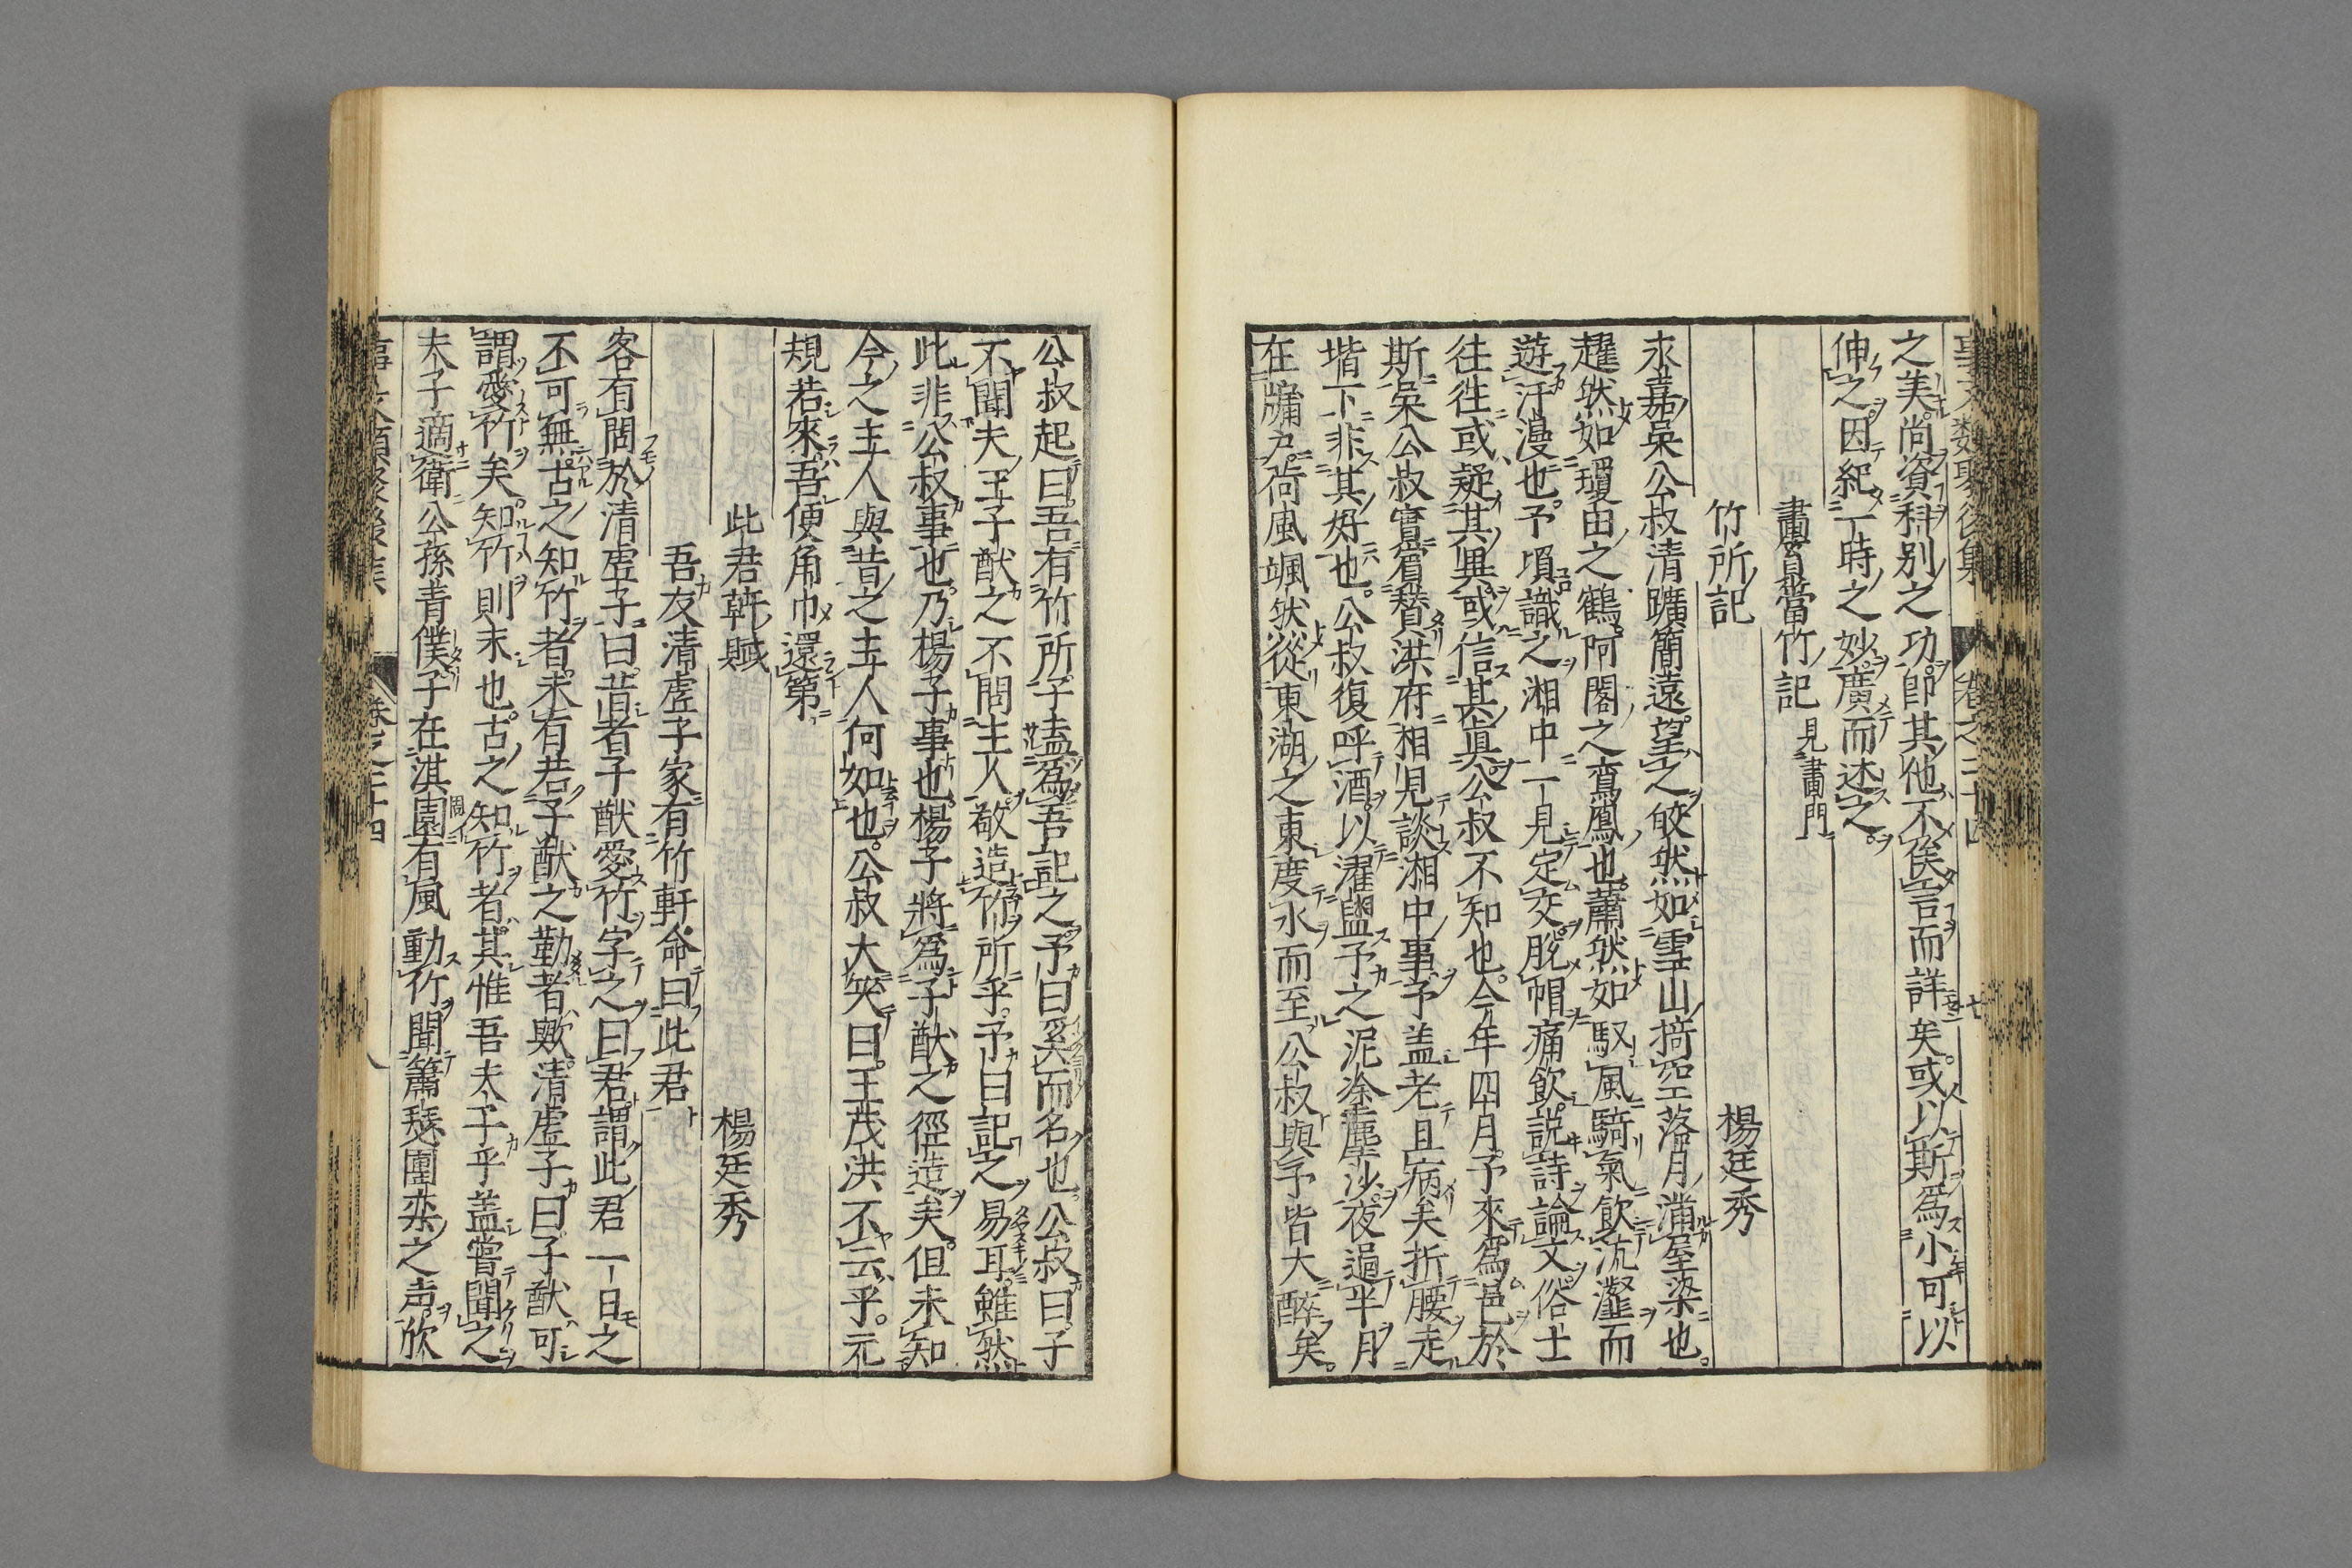 之美尚資科別之功即其他不俟言而詳矣或以斯爲小可以
伸之因紀一時之妙廣而述之
畫篔簹竹記見畫門
竹所記
楊廷秀
永嘉吳公叔清曠簡遠望之皎然如雪山掎空落月滿屋梁也
趯然如瓊田之鶴阿閣之鸞鳳也蕭然如馭風騎氣飲沆瀣而
遊汗漫也予頃識之湘中一見定交脫帽痛飲說詩論文俗士
往往或疑其異或信其眞公叔不知也今年四月予來爲邑於
斯吳公叔實賓贊洪府相見談湘中事予盖老且病矣折腰走
堦下非其好也公叔復呼酒以濯盥予之泥塗塵沙夜過半月
在牖戶荷風颯然從東湖之東度水而至公叔與予皆大醉矣
公叔起曰吾有竹所子盍爲吾記之予曰奚而名也公叔曰子
不聞夫王子猷之不問主人敬造竹所乎予曰記之易耳雖然
此非公叔事也乃楊子事也楊子將爲子猷之徑造矣但未知
今之主人與昔之主人何如也公叔大笑曰王茂洪不云乎元
規若來吾便角巾還第
此君軒賦
楊廷秀
吾友清虛子家有竹軒命曰此君
客有問於清虛子曰昔者子猷愛竹字之曰君謂此君一日之
不可無古之知竹者未有若子猷之勤者歟清虛子曰子猷可
謂愛竹矣知竹則未也古之知竹者其惟吾夫子乎盖嘗聞之
夫子適衛公孫青僕子在淇園有風動竹聞簫瑟團欒之声欣
卷之二十四
八